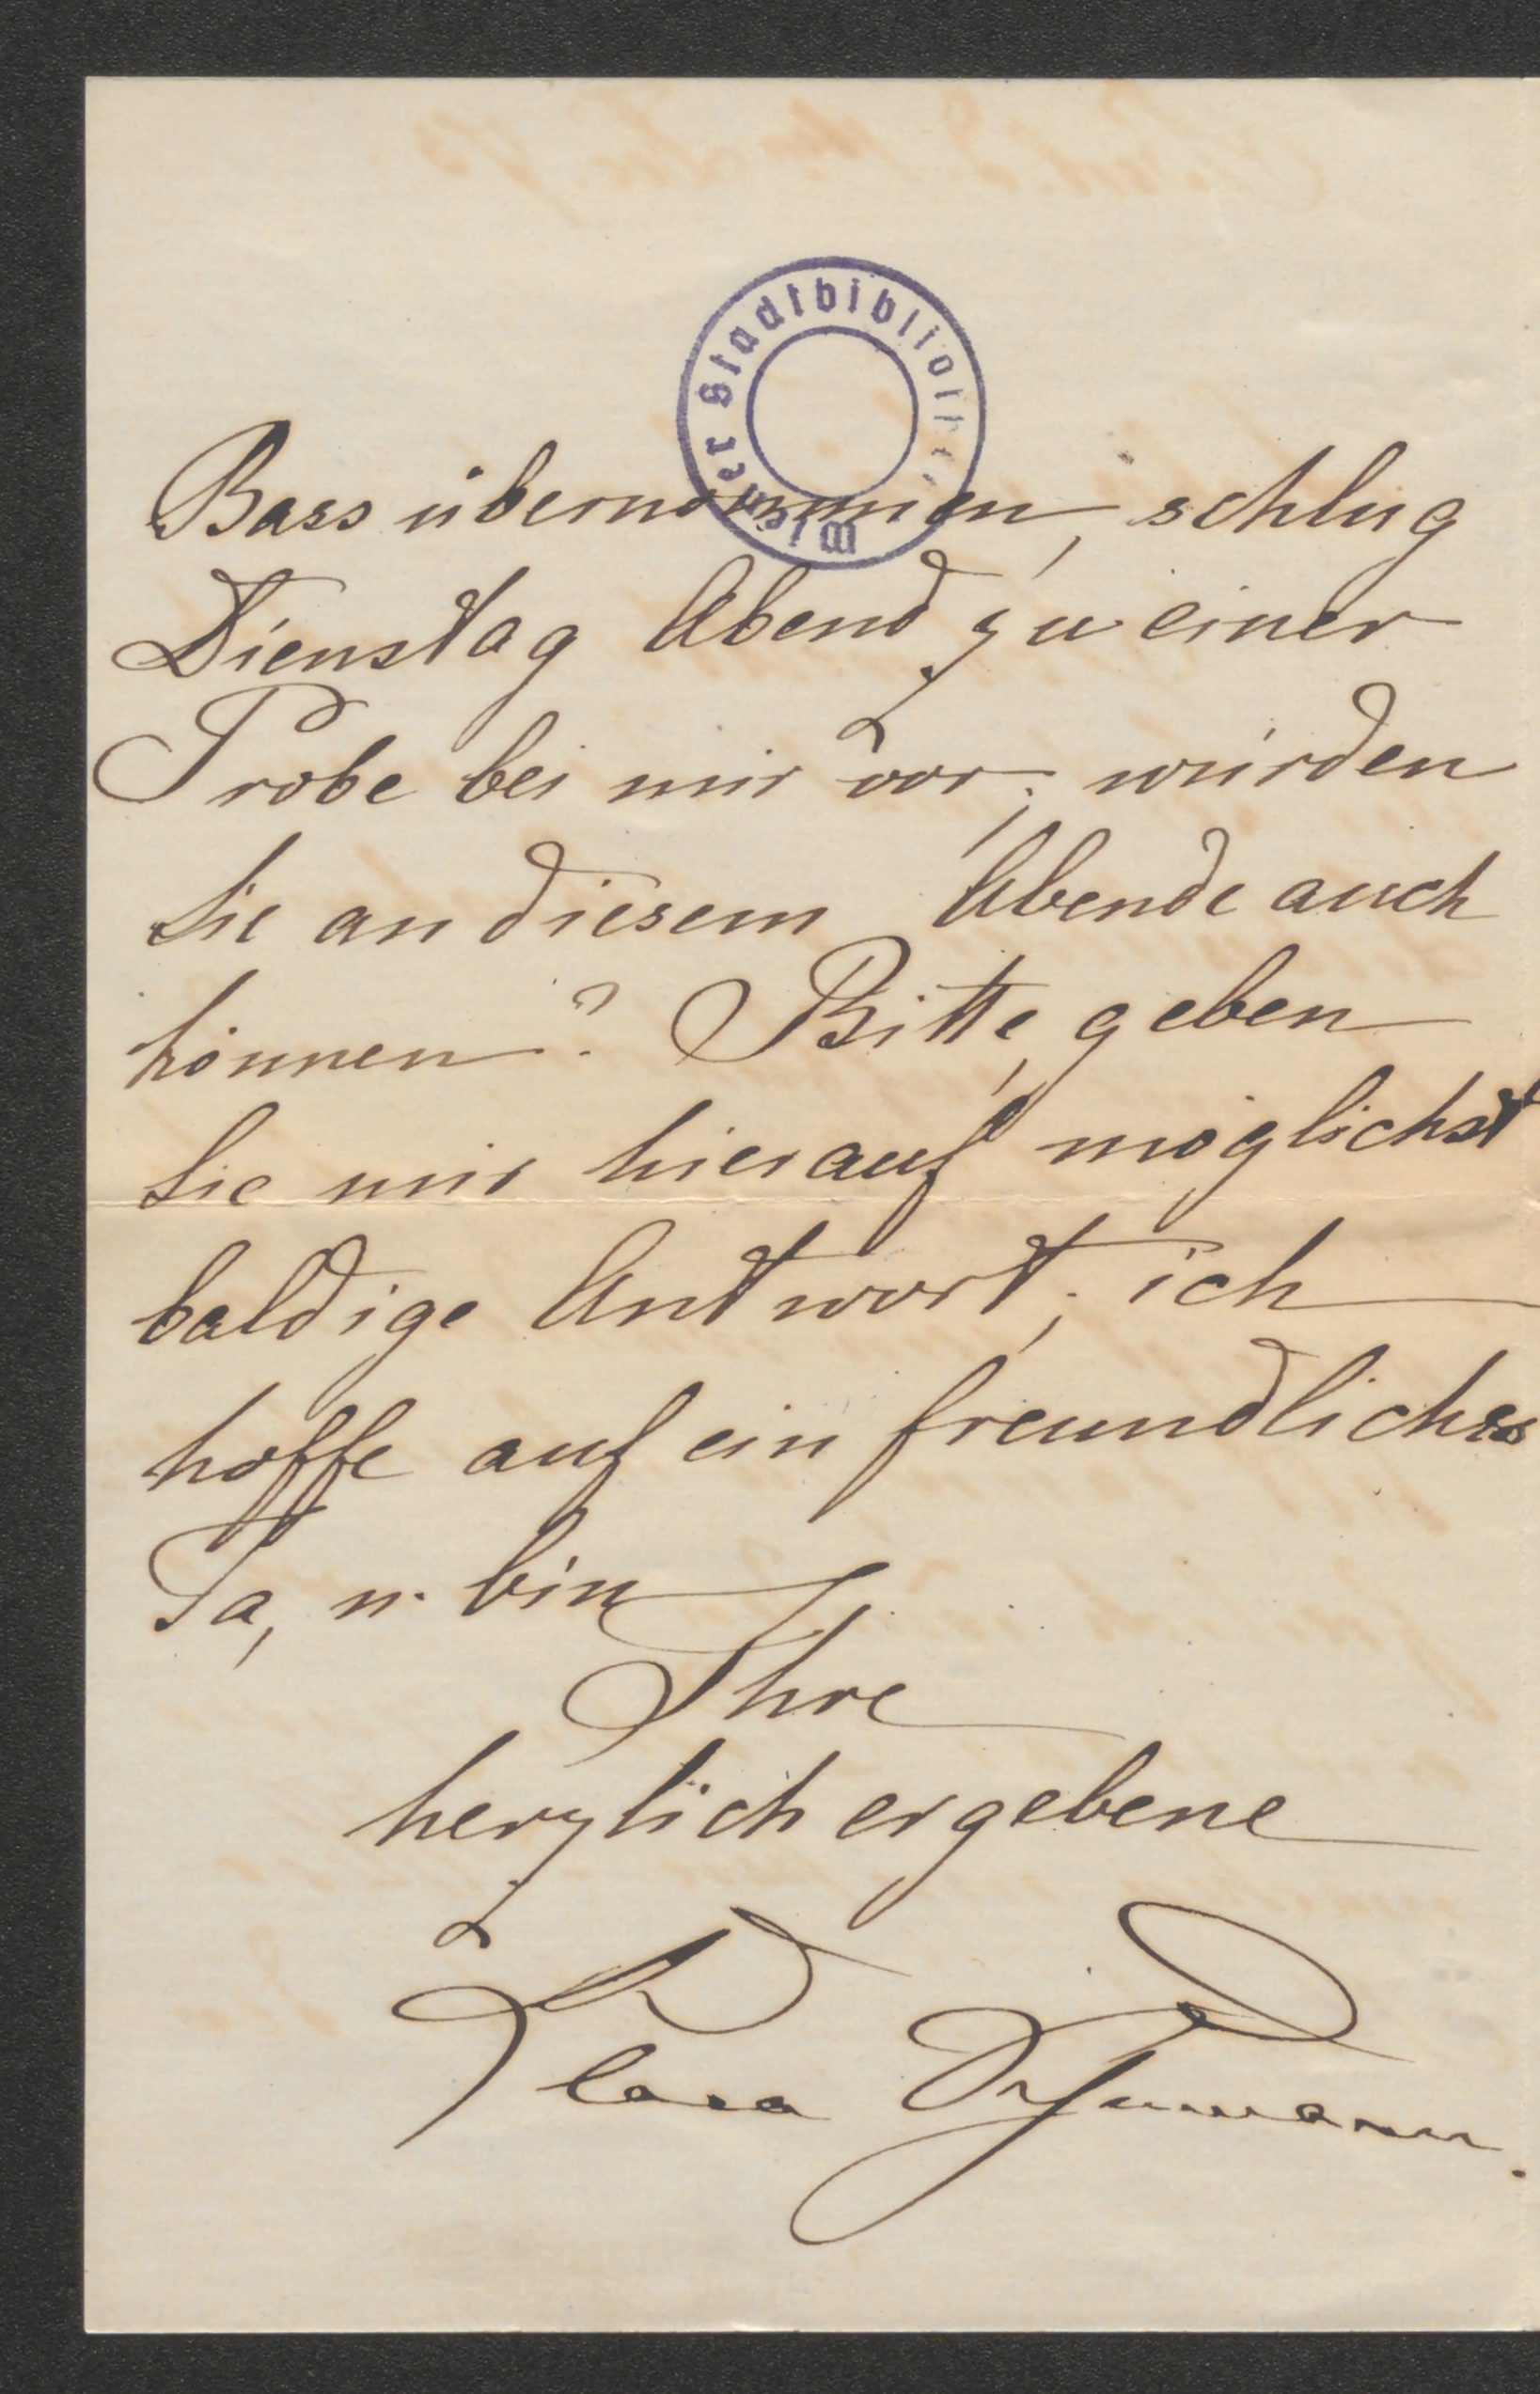 Wiener Stadtbibliothek
Bass übernommen, schlug
Dienstag Abend zu einer
Probe bei mir vor; würden
Sie an diesem Abende auch
können? Bitte, geben
Sie mir hierauf möglichst
baldige Antwort; ich
hoffe auf ein freundliches
Ja, u. bin
Ihre
herzlich ergebene
Clara Schumann.